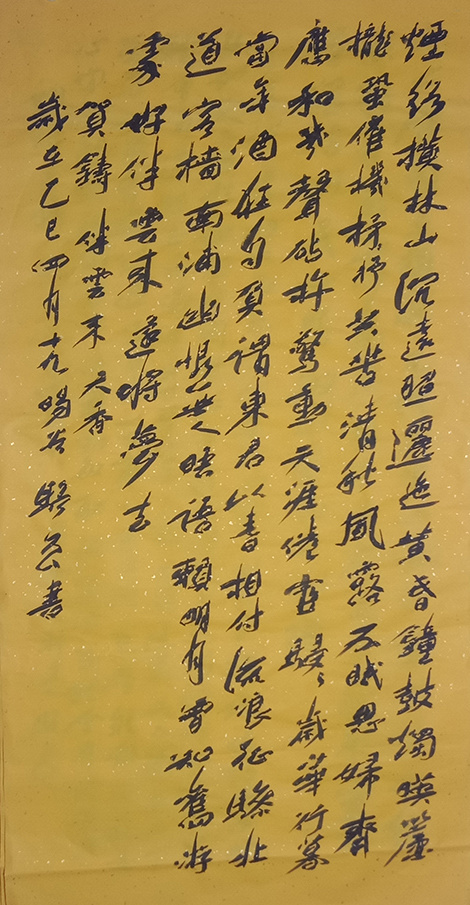 煙絡橫林山沉遠照邐迤黃昏鐘鼓燭映簾
櫳蛩催機杼共苦清秋風露不眠思婦齊
應和幾聲砧杵驚動天涯倦宦駸〻歲華行暮
當年酒狂自負謂東君以春相付流浪征驂北
道客檣南浦幽恨無人晤語賴明月曾知舊游
處好伴雲來還將夢去
賀鑄伴雲來天香
歲在乙巳四月十九暘谷書